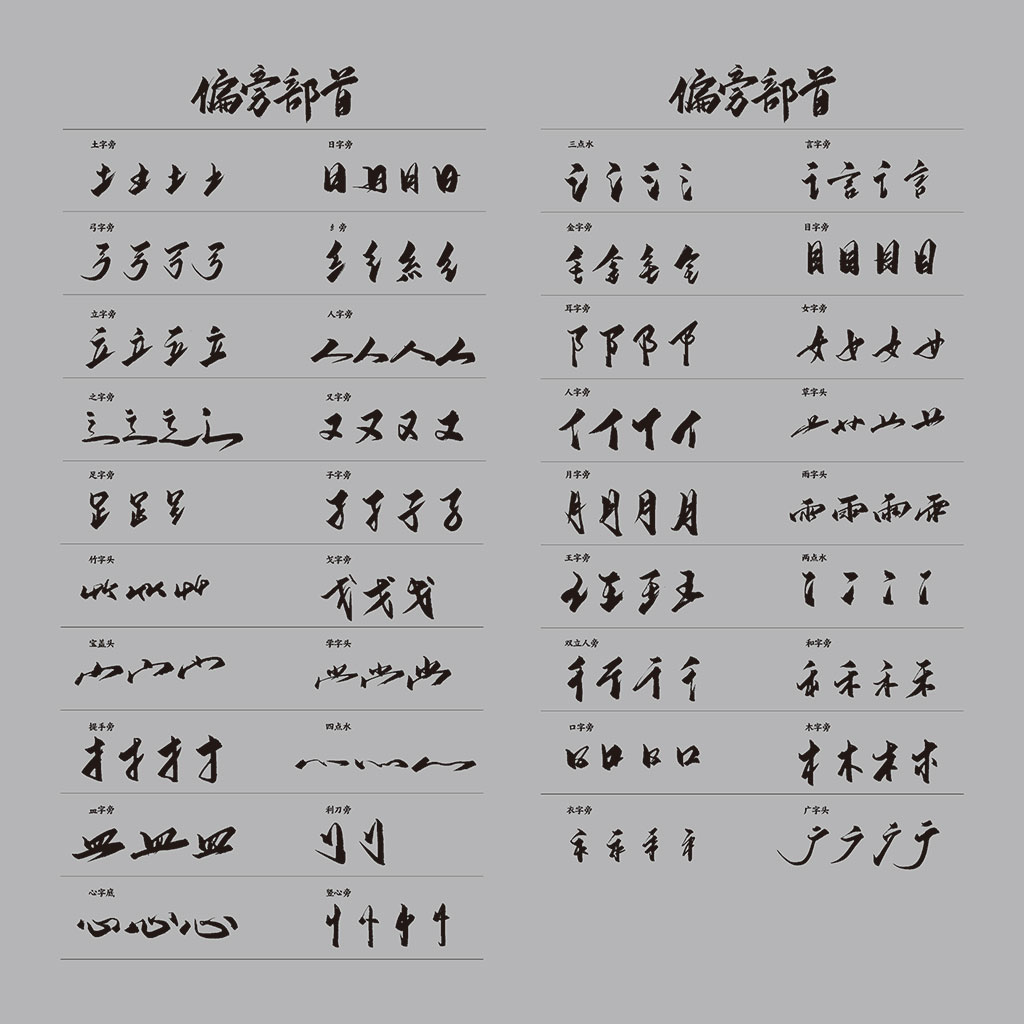 偏旁部首
土字旁 日字旁
土土土土 日日日日
弓字旁 纟旁
弓弓弓弓 纟纟糹纟
立字旁 人字旁
立立立立 人人人人
之字旁 又字旁
辶辶辶辶 又又又又
足字旁 子字旁
足足足 子子子子
竹字头 戈字旁
戈戈戈
宝盖头 学字头
宀宀宀
提手旁 四点水
扌扌扌扌 灬灬灬
皿字旁 利刀旁
皿皿皿 刂刂
心字底 竖心旁
心心心 忄忄忄忄
偏旁部首
三点水 言字旁
氵氵氵氵 讠言讠言
金字旁 日字旁
钅金钅金 目目目目
耳字旁 女字旁
阝阝阝阝 女女女女
人字旁 草字头
亻亻亻亻 艹艹艹艹
月字旁 雨字头
月月月月 雨雨雨雨
王字旁 两点水
王王王王 冫冫冫冫
双立人旁 和字旁
彳彳彳彳 禾禾禾禾
口字旁 木字旁
口口口口 木木木木
衣字旁 广字头
衤衤衤衤 广广广广